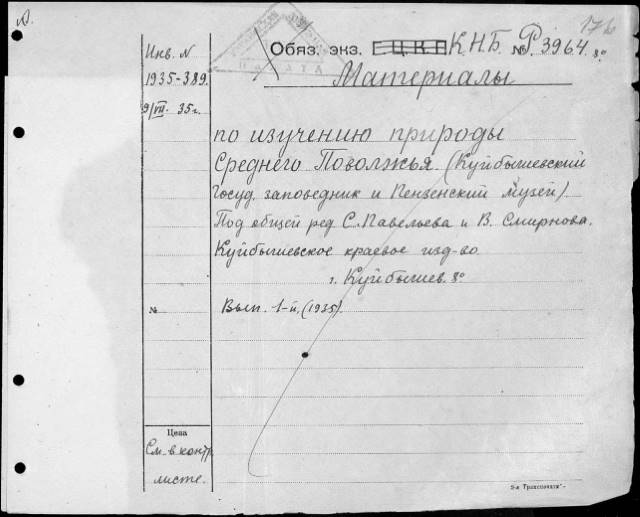 176
Инв. N
1935-389.
9/VII. 35 г.
Обяз. экз. Е Ц В К Г К.Н.Б. № Р 3964. 8°
ПАЛАТА
Материалы
по изучению природы
Среднего Поволжья (Куйбышевский
Госуд. заповедник и Пензенский музей)
Под общей ред. С. Павельева и В. Смирнова.
Куйбышевское краевое изд-во.
г. Куйбышев. 8°
№ Вып. 1-й, (1935).
Цена
См. в контр.
листе.